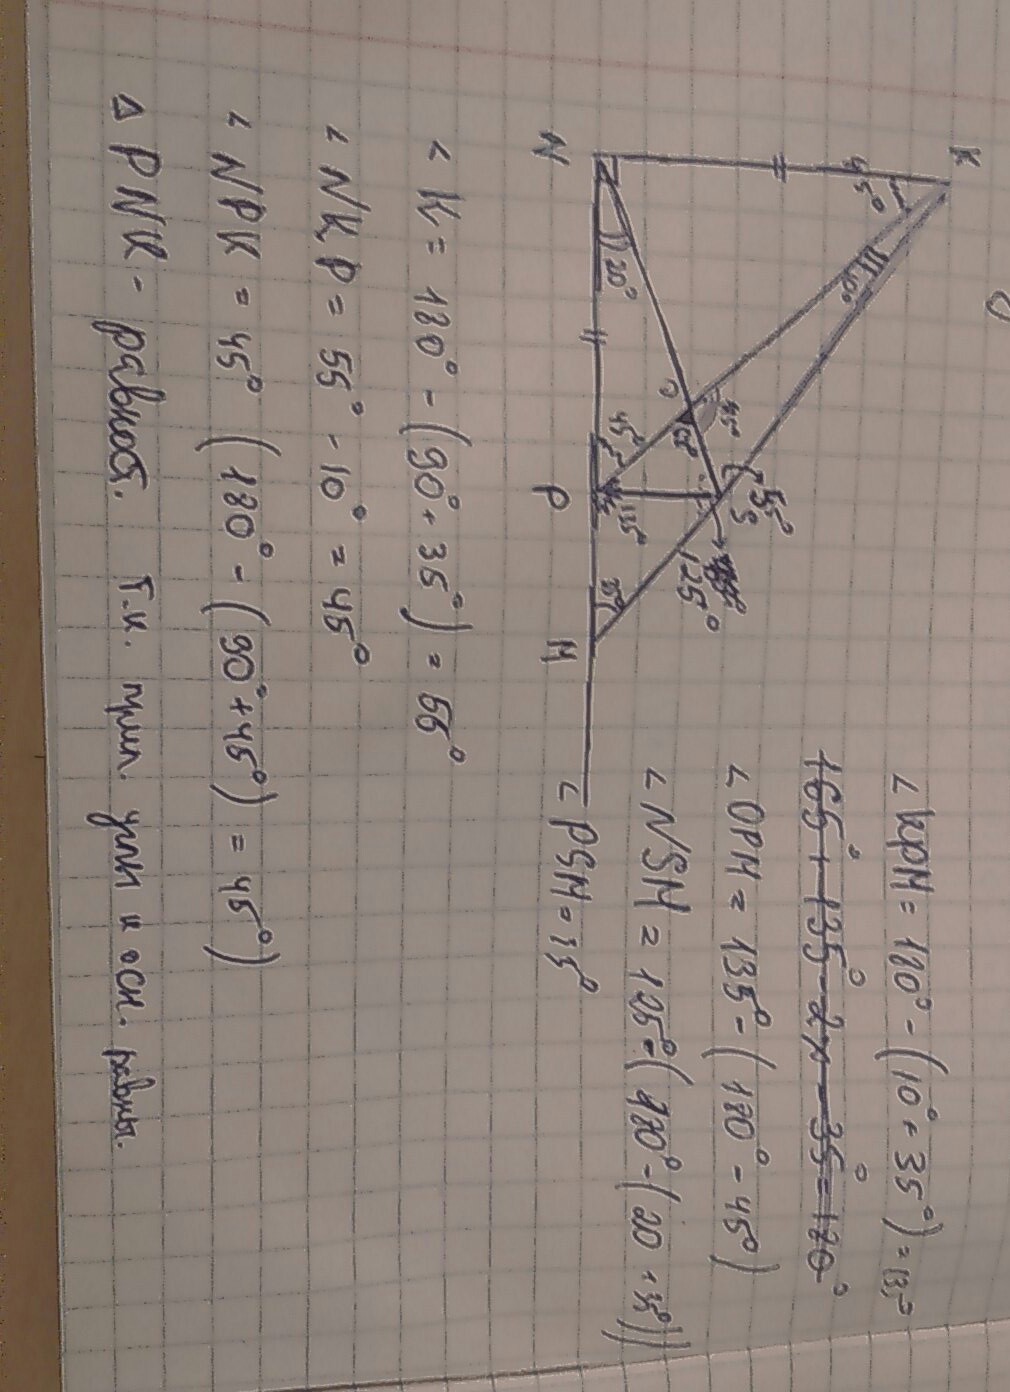 K
45°
10°
N
20°
O
45°
45°
P
55°
S
125°
35°
M
∠KPM = 180° - (10° + 35°) = 135°
165° + 135 - 2x - 35 = 180°
∠OPM = 135° - (180° - 45°)
∠NSM = 125° - (180° - (20 + 35°))
∠PSM = 15°
∠K = 180° - (90° + 35°) = 55°
∠NKP = 55° - 10° = 45°
∠NPK = 45° (180° - (90° + 45°) = 45°)
Δ PNK - равноб. Т.к. прил. углы к осн. равны.